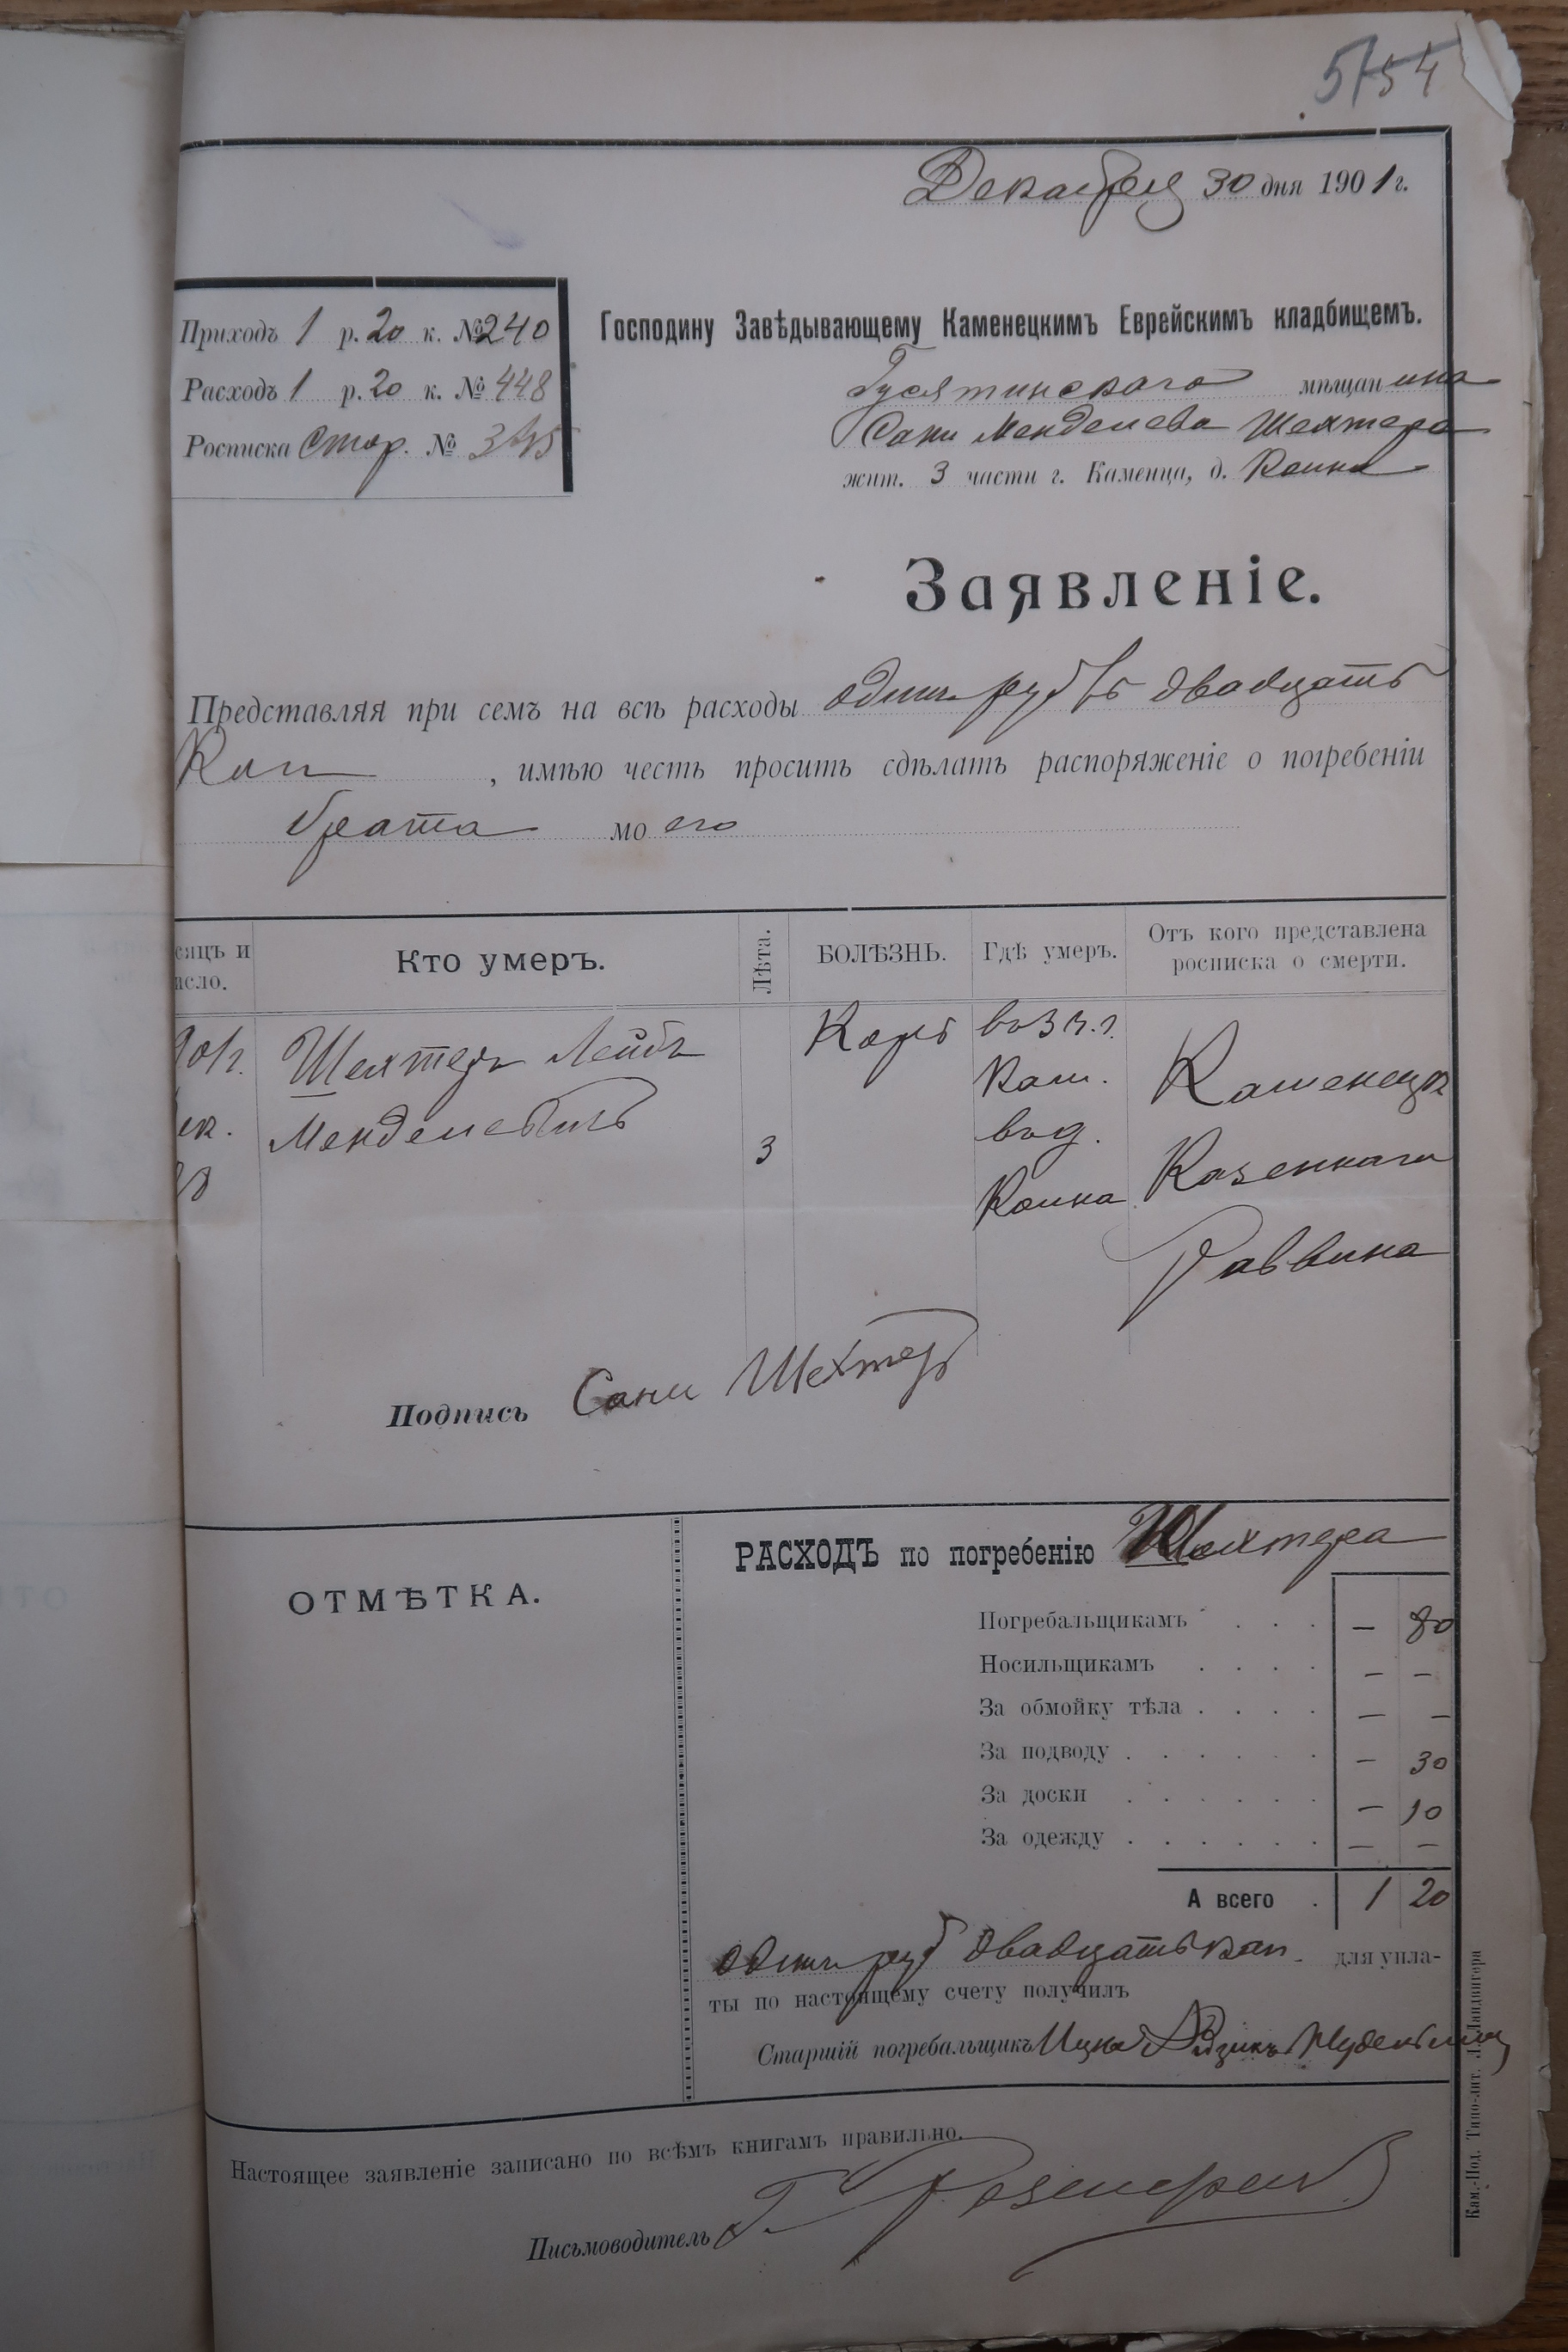 54
Декабря 30 дня 1901 г.
Приходъ 1 р. 20 к. № 240
Расходъ 1 р. 20 к. № 448
Росписка Стар. №
Господину Завѣдывающему Каменецкимъ Еврейскимъ кладбищемъ.
Гусятинскаго мѣщанина
Сани Менделева Шехтера
жит. 3 части г. Каменца, д. Коина
Заявленіе.
Представляя при семъ на всѣ расходы одинъ рубль двадцать
Коп , имѣю честь просить сдѣлать распоряженіе о погребеніи
брата моего
сяцъ и
исло.
Кто умеръ.
Лѣта.
БОЛѢЗНЬ.
Гдѣ умеръ.
Отъ кого представлена
росписка о смерти.
ек.
Шехтеръ Лейбъ
Менделевичъ
3
Корь
въ 3 ч. г.
Кам.
въ д.
Коина
Каменецк
Казеннаго
Раввина
Подпись Сани Шехтеръ
ОТМѢТКА.
РАСХОДЪ по погребенію Шехтера
Погребальщикамъ . . . — 80
Носильщикамъ . . . . — —
За обмойку тѣла . . . . — —
За подводу . . . . . . — 30
За доски . . . . . . — 10
За одежду . . . . . . — —
А всего . 1 20
одинъ руб двадцать коп. для упла-
ты по настоящему счету получилъ
Старшій погребальщикъ Ицко
Настоящее заявленіе записано по всѣмъ книгамъ правильно.
Письмоводитель
Кам.-Под. Типо-лит. Л. Ландвигера